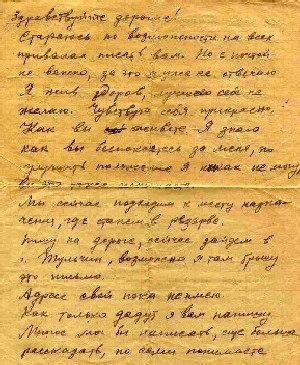 Здравствуйте дорогие!
Стараюсь по возможности на всех
привалах писать вам. Но с почтой
не важно, за это я уже не отвечаю
Я жив здоров, лучшего себе не
желаю. Чувствую себя прекрасно.
Как вы живете. Я знаю
как вы беспокоитесь за меня, но
положение я никак не могу
Мы сейчас подходим к месту назна-
чения, где станем в резерве.
Пишу на дороге, сейчас зайдем в
г. Тульчин, возможно я там брошу
это письмо.
Адреса своей пока не имею.
Как только дадут я вам напишу
Много мог бы написать, еще больше
рассказать, но сами понимаете